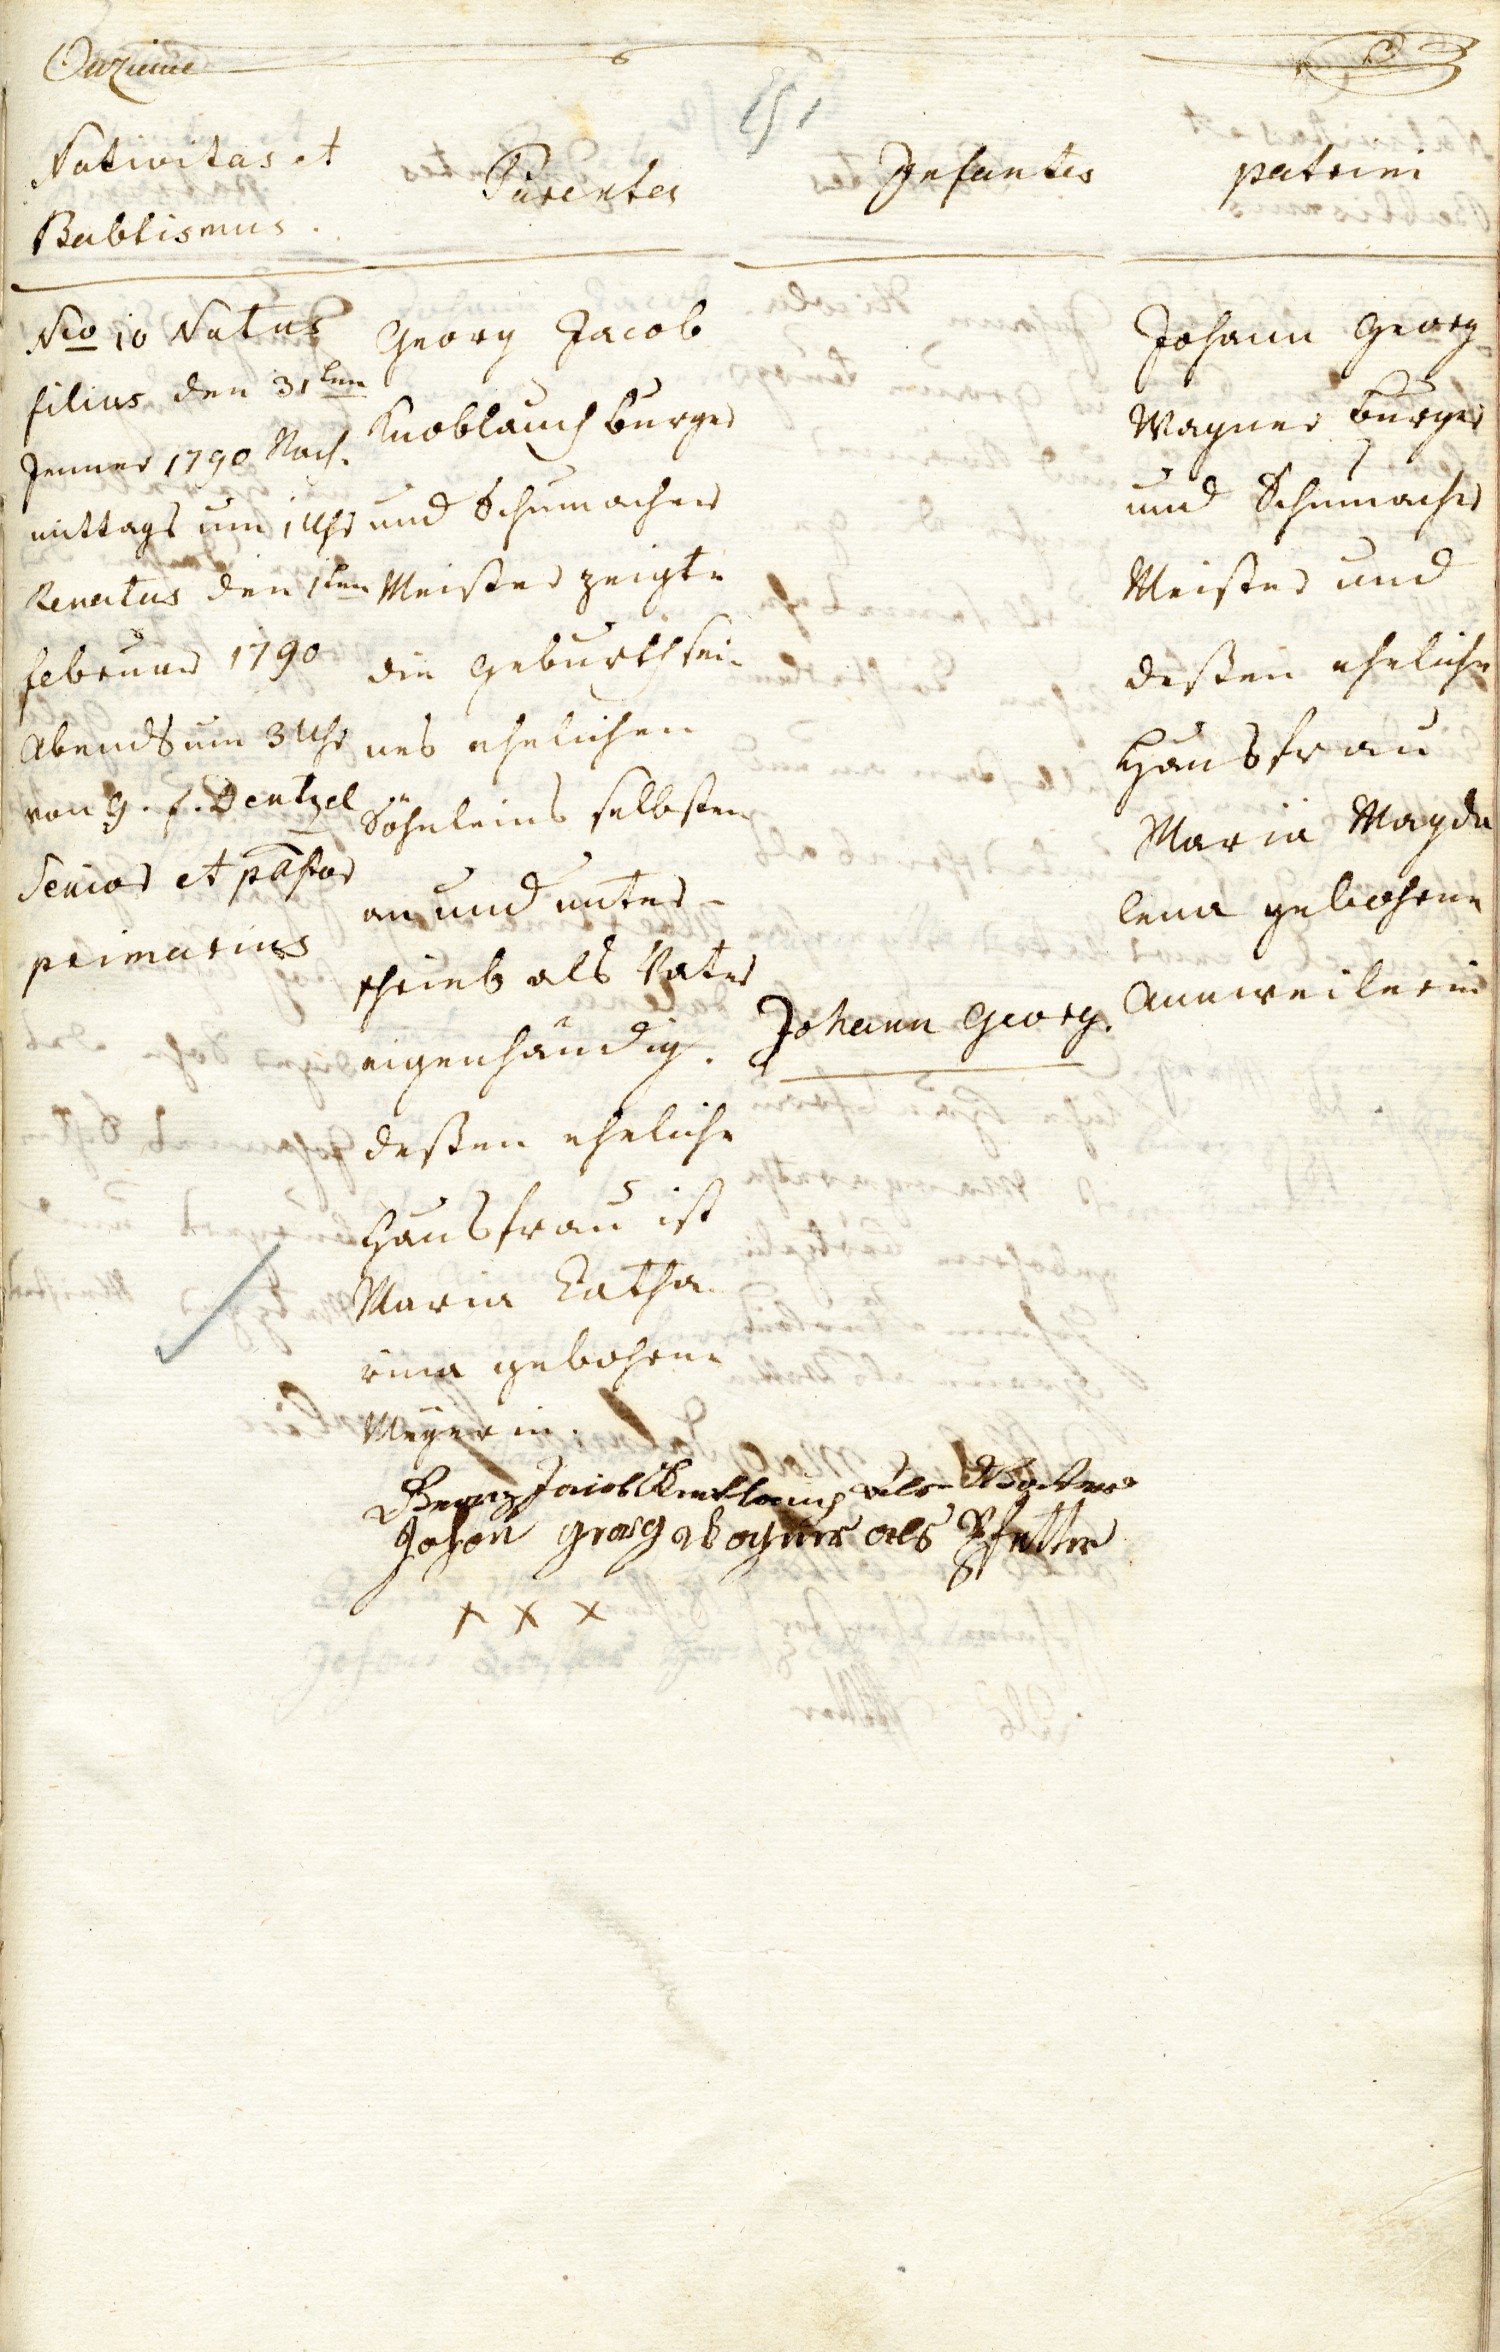 Onzieme
151
Nativitas et
Babtismus.
Parentes
Infantes
patrini
No 10 Natus
filius den 31ten
Jenner 1790 Nach-
mittags um 1 Uhr
Renatus den 1ten
februar 1790
Abends um 3 Uhr
von G. f. Dentzel
Senior et pastor
primarius
Georg Jacob
Knoblauch burger
und Schumacher
Meister zeigte
die Geburth sei-
nes ehelichen
Söhnleins selbsten
an und unter-
schrieb als Vater
eigenhändig.
deßen eheliche
Hausfrau ist
Maria Catha
rina gebohrne
Meÿerin.
Johann Georg.
Johann Georg
Wagner burger
und Schumacher
Meister und
deßen eheliche
Hausfrau
Maria Magda
lena gebohrne
Annweilerin
Georg Jacob Knoblauch als Vatter
Johan georg Wagner als Pfetter
x x x